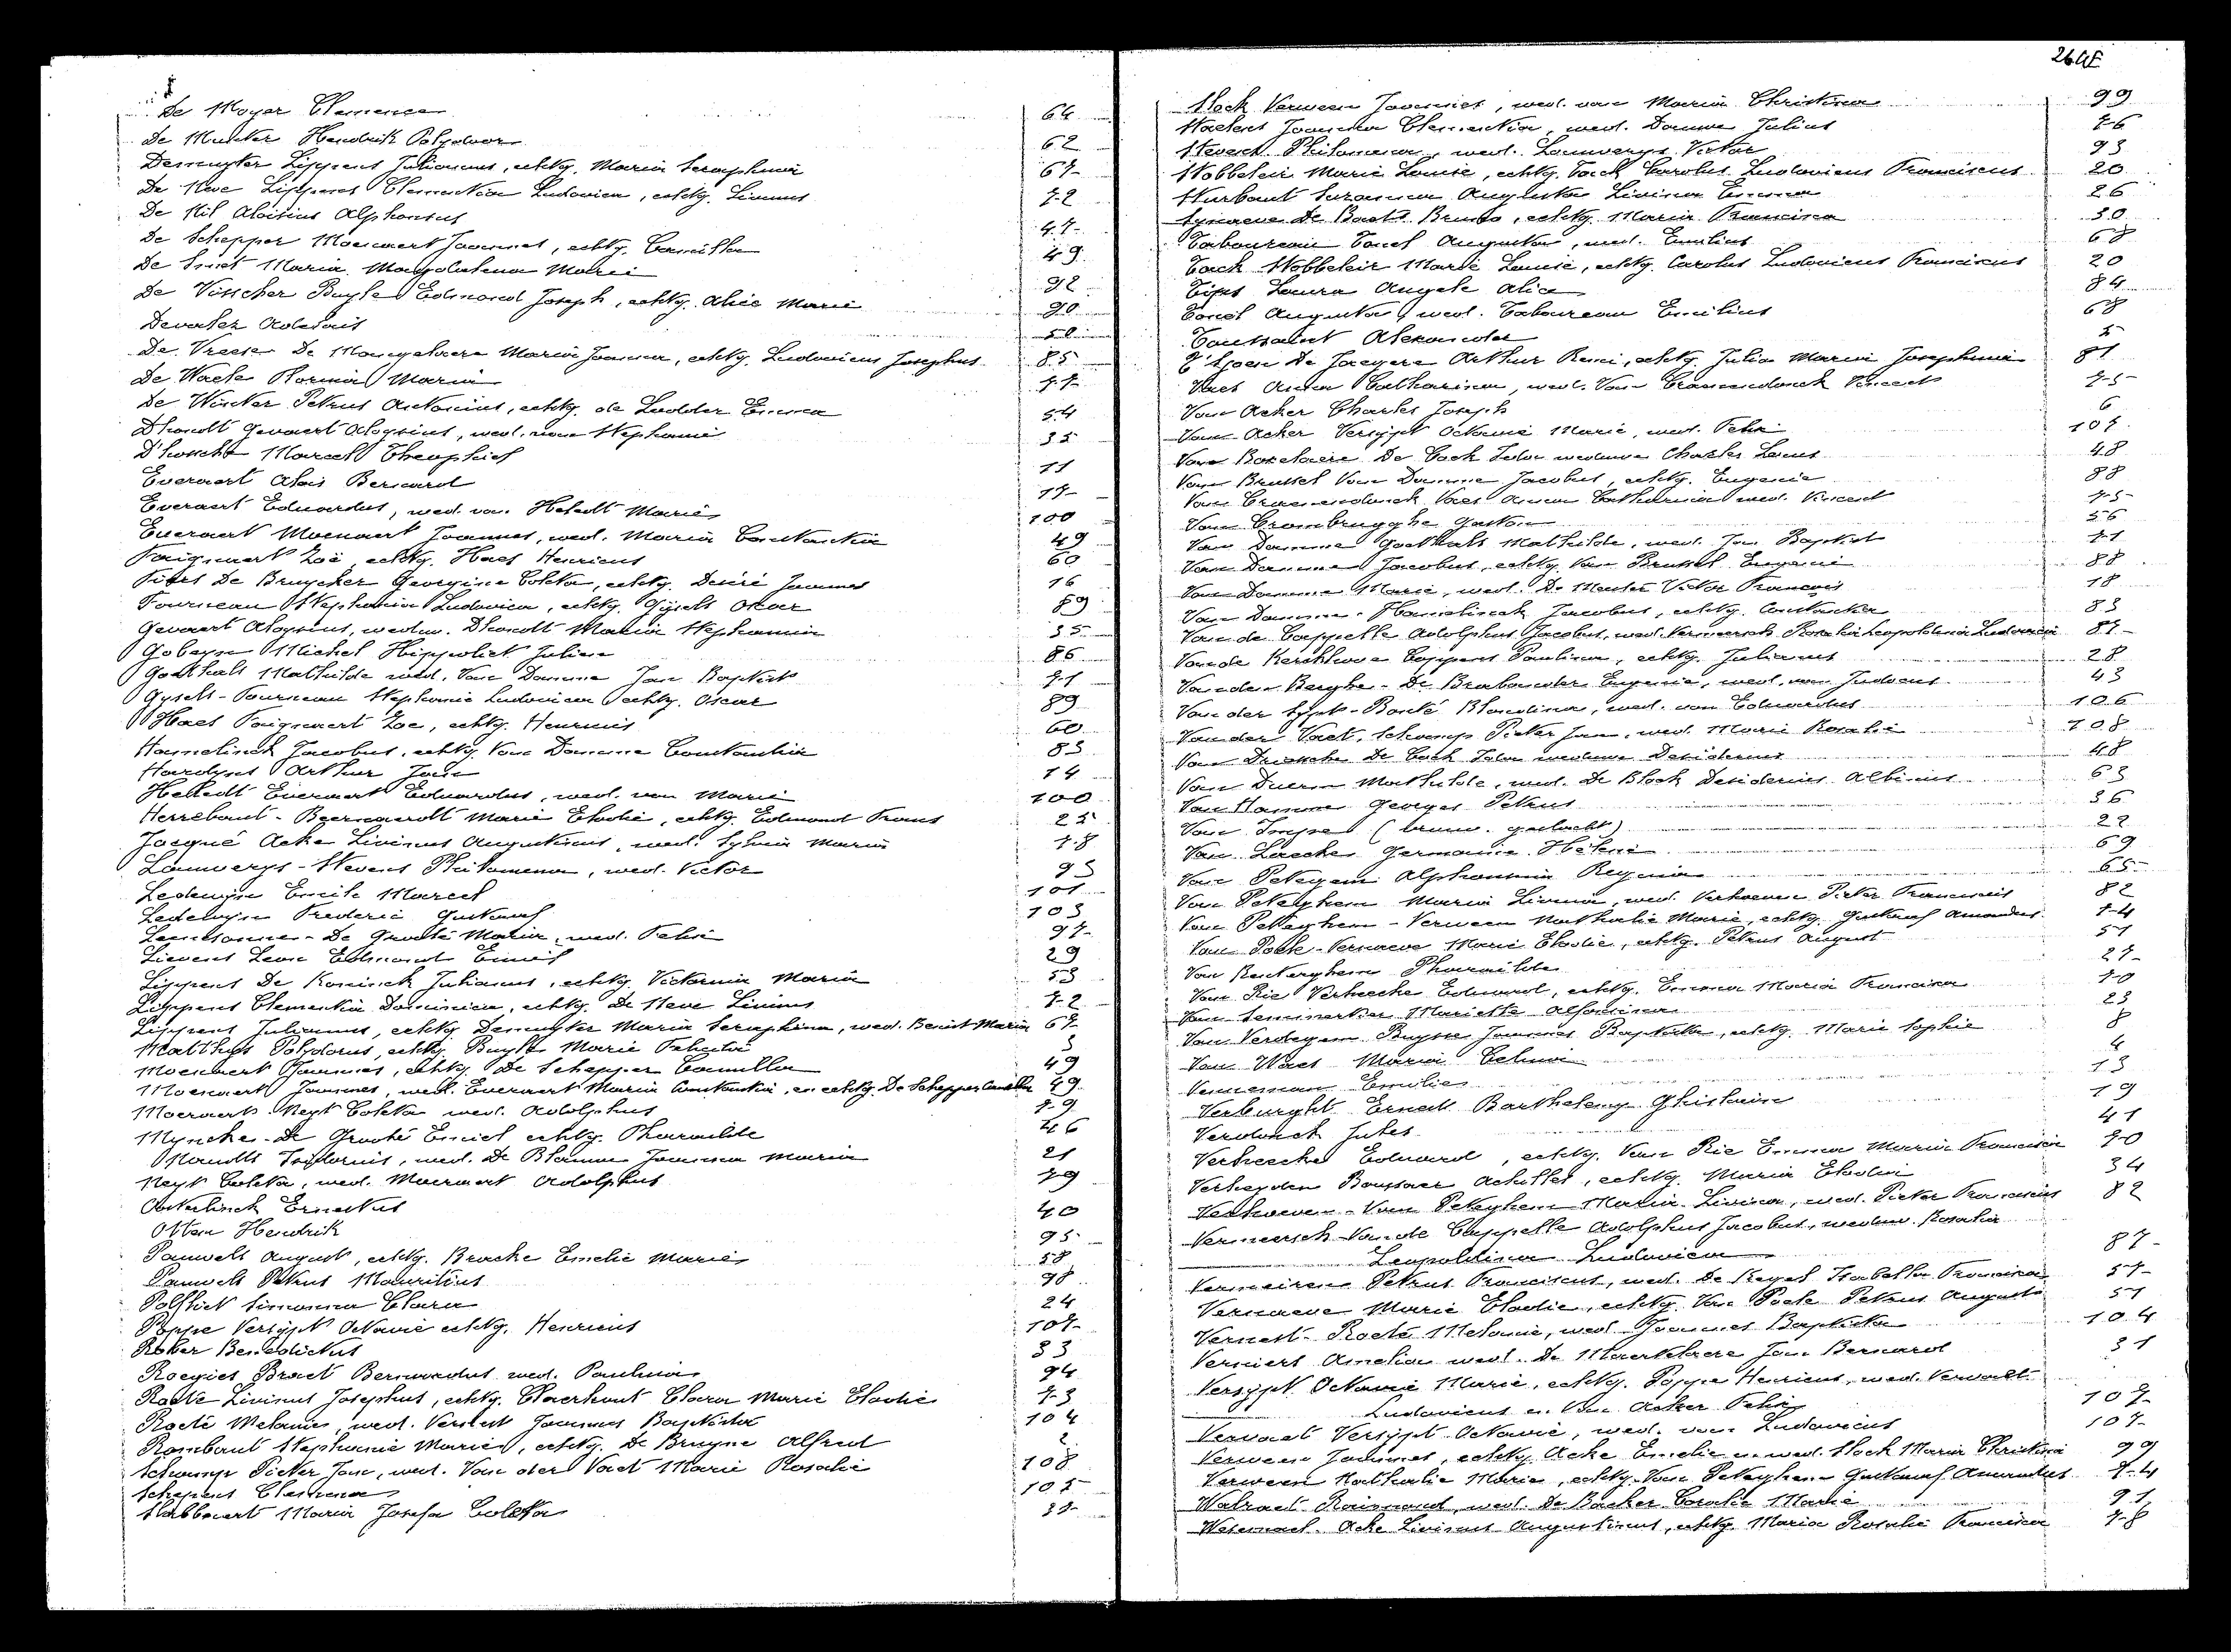 De Moyer Clemence 64
De Munter Hendrik Polydoor 62
Demuyter Lippens Julianus, echtg. Maria Seraphina 67
De Neve Lippens Clementia Ludovica, echtg. Livinus 72
De Nil Aloisius Alphonsus 47
De Schepper Moenaert Joannes, echtg. Camilla 49
De Smet Maria Magdalena Marie 92
De Visscher Buyle Edmond Joseph, echtg. Alice Marie 90
Devalez Adelaïs 50
De Vreese De Mangelaere Maria Joanna, echtg. Ludovicus Josephus 85
De Waele Florina Maria 77
De Winter Petrus Antonius, echtg. de Ledder Emma 54
Dhondt Gevaert Aloysius, wed. van Stephanie 35
D'hondt Marcel Theophiel 11
Everaert Alois Bernard 17
Everaert Eduardus, wed. van Heledt Marie 100
Everaert Moenaert Joannes, wed. Maria Constantia 49
Faignaert Zoé echtg. Haes Henricus 60
Fiers De Bruycker Georgine Coleta, echtg. Desiré Joannes 16
Fourneau Stephania Ludovica, echtg. Gijsels Oscar 89
Gevaert Aloysius, weduw. Dhondt Maria Stephania 35
Gobeyn Michel Hippoliet Julien 86
Goethals Mathilde wed. Van Damme Jan Baptist 71
Gysels-Fourneau Stephanie Ludovica echtg. Oscar 89
Haes Faignaert Zoe, echtg. Henricus 60
Hamelinck Jacobus, echtg. Van Damme Constantia 83
Hardyns Arthur Jan 14
Heledt Everaert Eduardus, wed. van Marie 100
Herrebout-Beernaerdt Marie Elodie, echtg. Edmond Frans 25
Jacqué Acke Livinus Augustinus, wed. Sylvia Maria 78
Lauwerys-Stevens Philomena, wed. Victor 93
Ledewyn Emile Marcel 101
Ledewyn Frederic Gustaaf 103
Leenesonne-De Groote Maria, wed. Felix 97
Lievens Leon Edmond Emiel 29
Lippens De Koninck Julianus, echtg. Victorina Maria 53
Lippens Clementia Dominica, echtg. De Neve Livinus 72
Lippens Julianus, echtg. Demuyter Maria Seraphina, wed. Benoit Maria 67
Matthys Polydorus, echtg. Buyle Marie Felicité 3
Moenaert Joannes, echtg. De Schepper Camilla 49
Moenaert Joannes, wed. Everaert Maria Constantia, en echtg. De Schepper Camilla 49
Moeraert Neyt Coleta wed. Adolphus 79
Myncke-De Groote Emiel echtg. Pharailde 46
Nandts Isidorus, wed. De Blauwe Joanna Maria 21
Neyt Coleta, wed. Moeraert Adolphus 79
Oosterlinck Ernestus 40
Otten Hendrik 95
Pauwels August, echtg. Bracke Emelie Marie 58
Pauwels Petrus Mauritius 98
Polfliet Simonna Clara 24
Poppe Versijpt Octavie echtg. Henricus 107
Raber Benedictus 33
Roegies Braet Bernardus wed. Paulina 94
Roete Livinus Josephus, echtg. Claerhout Clara Marie Elodie 73
Roeté Melanie, wed. Verniest Joannes Baptista 104
Rombaut Stephanie Marie, echtg. De Bruyne Alfred 2
Schamp Pieter Jan, wed. Van der Vaet Marie Rosalie 108
Schepens Clemence 105
Slabbaert Maria Josefa Coleta 37
Slock Verween Joannes, wed. van Maria Christina 99
Staelens Joanna Clementia, wed. Dauwe Julius 76
Stevens Philomena, wed. Lauwerys Victor 93
Stobbeleir Marie Louise, echtg. Tack Carolus Ludovicus Franciscus 20
Sturbaut Suzanna Augusta Livina Emma 26
Synaeve De Baets Bruno, echtg. Maria Francisca 30
Taboureau Tancl Augusta, wed. Emilius 68
Tack Stobbeleir Marie Louise, echtg. Carolus Ludovicus Franciscus 20
Tips Laura Angele Alice 84
Tancl Augusta, wed. Taboureau Emilius 68
Toussaint Alexander 5
T'Sjoen De Jaegere Arthur Remi, echtg. Julia Maria Josephina 81
Vaes Anna Catharina, wed. Van Craenendonck Vincent 75
Van Acker Charles Joseph 6
Van Acker Versijpt Octavie Marie, wed. Felix 107
Van Boxelaere De Cock Julia weduwe Charles Louis 48
Van Brussel Van Damme Jacobus, echtg. Eugenie 88
Van Craenendonck Vaes Anna Catharina wed. Vincent 75
Van Crombrugghe Gaston 56
Van Damme Goethals Mathilde, wed. Jan Baptist 71
Van Damme Jacobus, echtg. Van Brussel Eugenie 88
Van Damme Marie, wed. De Meuter Victor François 18
Van Damme-Hamelinck Jacobus, echtg. Constantia 83
Van de Cappelle Adolphus Jacobus, wed. Vermeersch Rosalia Leopoldina Ludovica 87
Van de Kerckhove Coppens Paulina, echtg. Julianus 28
Van den Berghe-De Brabander Eugenie, wed. van Judocus 43
Van der Sypt-Bonté Blandina, wed. van Eduardus 106
Van der Vaet, Schamp Pieter Jan, wed. Marie Rosalie 108
Van Driessche De Cock Julia weduwe Desiderius 48
Van Duern Mathilde, wed. De Block Desiderius Albinus 63
Van Hamme Georges Petrus 36
Van Impe (brouw. geslacht) 22
Van Laecke Germaine Hélène 69
Van Peteghem Alphonsina Regina 65
Van Peteghem Maria Livina, wed. Verhoeven Pieter Franciscus 82
Van Peteghem-Verween Nathalie Marie, echtg. Gustaaf Amandus 74
Van Poele-Vernaeve Marie Elodie, echtg. Petrus August 51
Van Renterghem Pharailde 27
Van Rie Verheecke Eduard, echtg. Emma Maria Francisca 70
Van Seminertier Mariette Alfonsina 23
Van Verdegem Buysse Joannes Baptista, echtg. Marie Sophie 8
Van Waes Maria Celina 4
Venneman Emilie 13
Verburght Ernest Barthelemy Ghislain 19
Verdonck Jules 41
Verheecke Eduard, echtg. Van Rie Emma Maria Francisca 70
Verheyden Boussaer Achilles, echtg. Maria Elodia 34
Verhoeven-Van Peteghem Maria Livina, wed. Pieter Franciscus 82
Vermeersch Van de Cappelle Adolphus Jacobus, weduw. Rosalia
Leopoldina Ludovica 87
Vermeiren Petrus Franciscus, wed. De Keyzel Isabella Francisca 57
Vernaeve Marie Elodie, echtg. Van Poele Petrus Auguste 51
Vernest-Roeté Melanie, wed. Joannes Baptista 104
Verniers Amelia wed. De Maertelaere Jan Bernard 31
Versijpt Octavie Marie, echtg. Poppe Henricus, wed. Vervaet
Ludovicus en Van Acker Felix 107
Vervaet Versijpt Octavie, wed. van Ludovicus 107
Verween Joannes, echtg. Acke Emelie en wed. Slock Maria Christina 99
Verween Nathalie Marie, echtg. Van Peteghem Gustaaf Amandus 74
Walraet Raimond, wed. De Backer Coralie Marie 91
Wesemael-Acke Livinus Augustinus, echtg. Maria Rosalie Francisca 78